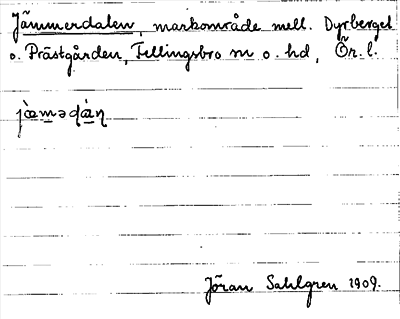 Jämmerdalen, markområde mell. Dyrberget
o. Prästgården, Fellingsbro sn o. hd, Ör. l.
Jöran Sahlgren 1909.